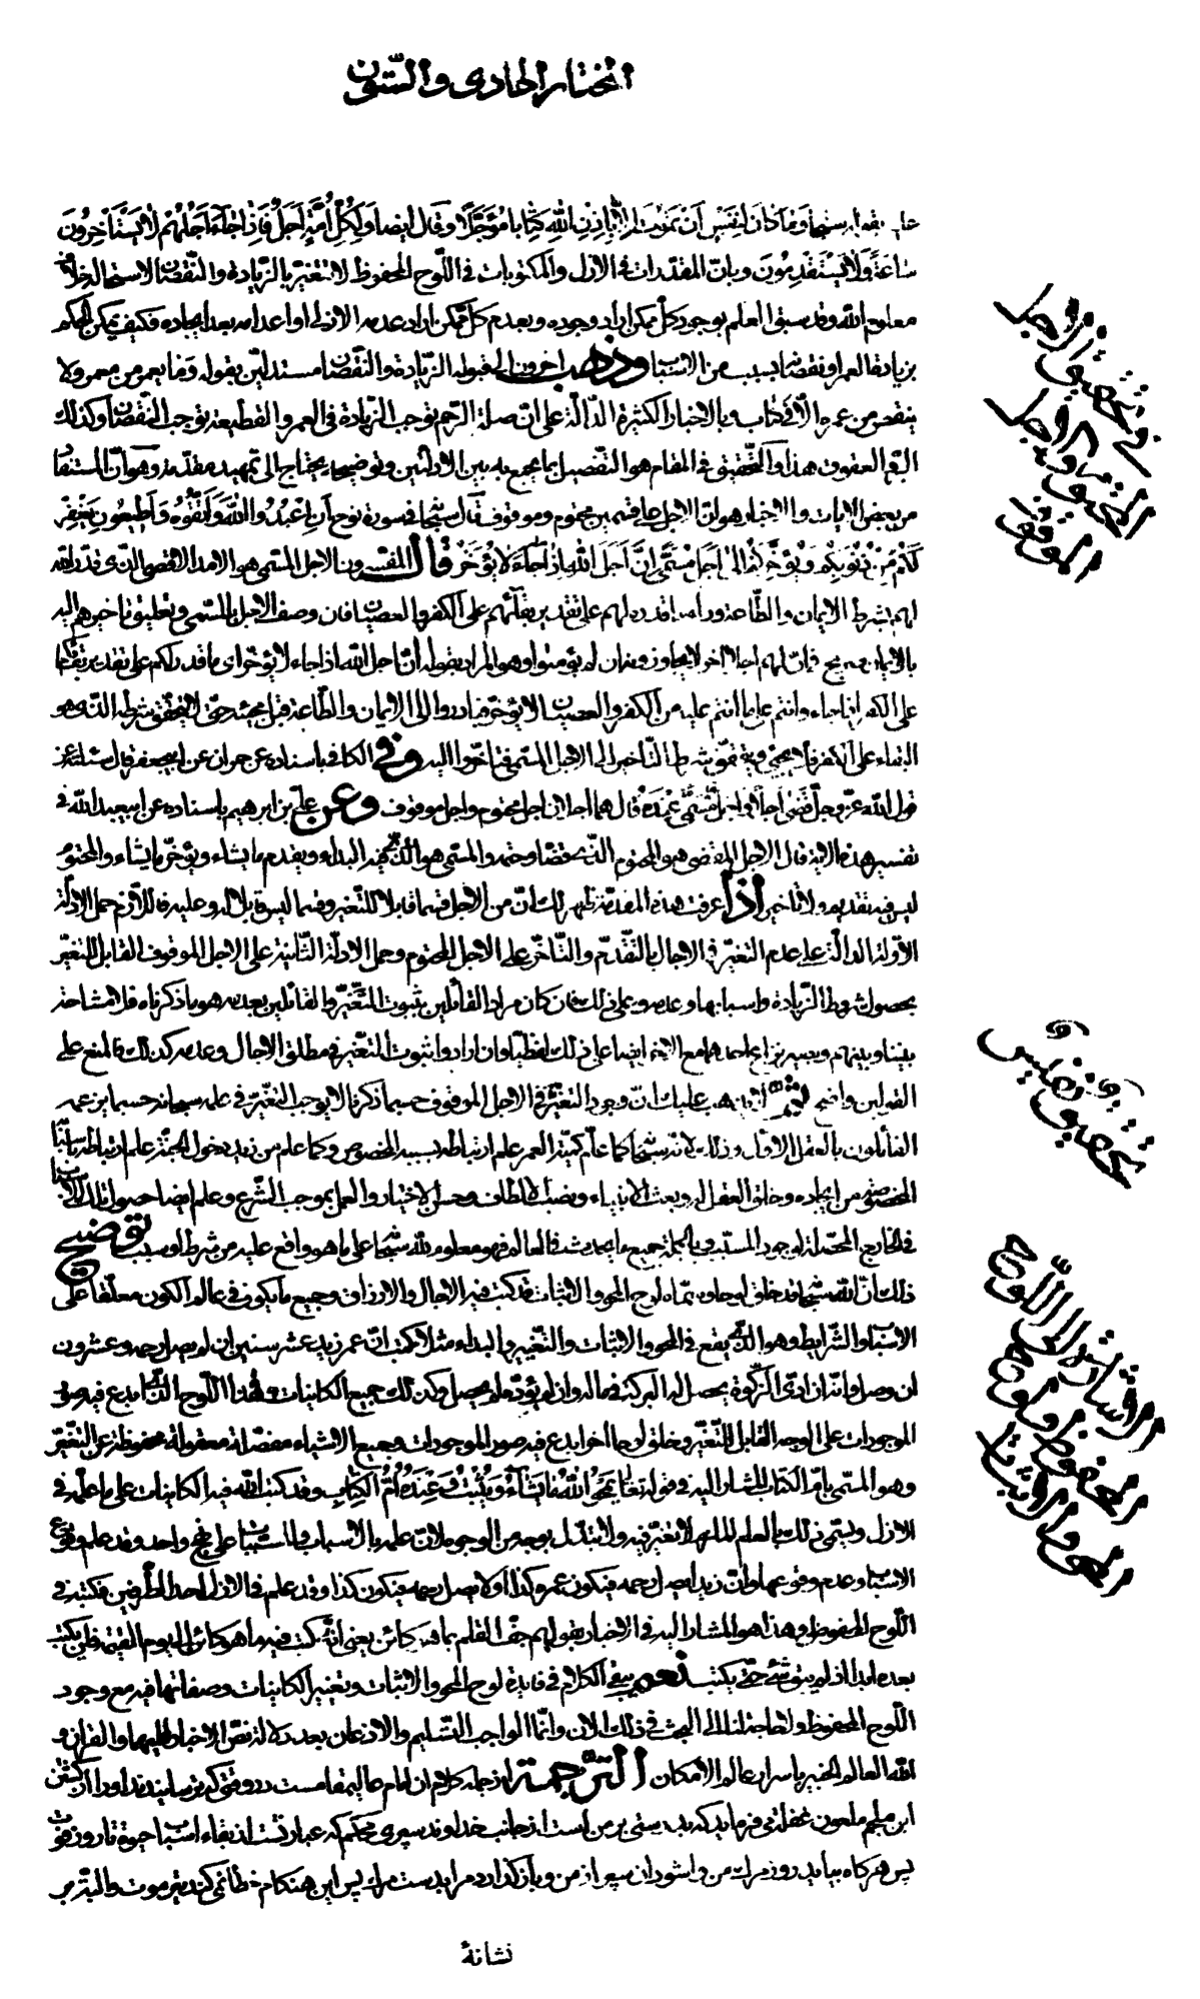 المختار الحادى والستون
عليه بقوله سبحانه وَمٰا كٰانَ لِنَفْسٍ أَنْ تَمُوتَ إِلّٰا بِإِذْنِ اللّٰهِ كِتٰاباً مُؤَجَّلاً وقال ايضا وَلِكُلِّ أُمَّةٍ أَجَلٌ فَإِذٰا جٰاءَ أَجَلُهُمْ لٰا يَسْتَأْخِرُونَ
سٰاعَةً وَلٰا يَسْتَقْدِمُونَ وبانّ المقدّرات فى الازل والمكتوبات فى اللّوح المحفوظ لا تتغيّر بالزّيادة والنّقصان لاستحالة خلاف
معلوم اللّه وقد سبق العلم بوجود كلّ ممكن اراد وجوده وبعدم كلّ ممكن اراد عدمه الازلى او اعدامه بعد ايجاده فكيف يمكن الحكم
بزيادة العمر او نقصانه بسبب من الاسباب وذهب اخرون الى قبوله الزّيادة والنّقصان مستدلّين بقوله وما يعمر من معمر ولا
ينقص من عمره الّا فى كتاب وبالاخبار الكثيرة الدّالّة على انّ صلة الرّحم توجب الزّيادة فى العمر والقطيعة توجب النّقصان وكذلك
البرّ والعقوق هذا والتّحقيق فى المقام هو التّفصيل بما يجمع به بين الادلّتين وتوضيحه يحتاج الى تمهيد مقدّمة وهو انّ المستفاد
من بعض الايات والاخبار هو انّ الاجل على قسمين محتوم وموقوف قال سبحانه فى سورة نوح أَنِ اعْبُدُوا اللّٰهَ وَاتَّقُوهُ وَأَطِيعُونِ يَغْفِرْ
لَكُمْ مِنْ ذُنُوبِكُمْ وَيُؤَخِّرْكُمْ إِلىٰ أَجَلٍ مُسَمًّى إِنَّ أَجَلَ اللّٰهِ إِذٰا جٰاءَ لٰا يُؤَخَّرُ قال المفسّرون الاجل المسمّى هو الامد الاقصى الّذى قدّره اللّه
لهم بشرط الايمان والطّاعة وراء ما قدره لهم على تقدير بقائهم على الكفر والعصيان فان وصف الاجل بالمسمّى وتعليق تاخيرهم اليه
بالايمان صريح فى انّ لهم اجلا اخر لا يجاوزونه ان لم يؤمنوا وهو المراد بقوله انّ اجل اللّه اذا جاء لا يؤخّر اى ما قدر لكم على تقدير بقائكم
على الكفر اذا جاء وانتم على ما انتم عليه من الكفر والعصيان لا يؤخّر فبادروا الى الايمان والطّاعة قبل مجيئه حتّى لا يتحقّق شرطه الّذى هو
البقاء على الكفر فلا يجىء ويتحقّق شرط التّاخير الى الاجل المسمّى فتاخّروا اليه وفى الكافى باسناده عن حمران عن ابيجعفر قال سئلته عن
قول اللّه عزّ وجلّ قَضىٰ أَجَلاً وَأَجَلٌ مُسَمًّى عِنْدَهُ قال هما اجلان اجل محتوم واجل موقوف وعن علىّ بن ابرهيم باسناده عن ابيعبد اللّه فى
تفسير هذه الاية قال الاجل المقضى هو المحتوم الّذى قضاه وحتمه والمسمّى هو الّذى فيه البداء ويقدم ما يشاء ويؤخّر ما يشاء والمحتوم
ليس فيه تقديم ولا تأخير اذا عرفت هذه المقدّمة ظهر لك انّ من الاجل قسما قابلا للتّغيير وقسما ليس قابلا له وعليه فاللّازم حمل الادلّة
الاوّلة الدالّة على عدم التغيّر فى الاجال بالتّقدّم والتّاخّر على الاجل المحتوم وحمل الادلّة الثّانية على الاجل الموقوف القابل للتّغيّر
بحصول شروط الزّيادة واسبابها وعدمه وعلى ذلك فان كان مراد القائلين بثبوت التّغيّر والقائلين بعدمه هو ما ذكرناه فلا مشاحة
بيننا وبينهم ويصير نزاع احدهما مع الاخر ايضا على ذلك لفظيّا وان ارادوا ثبوت التّغيّر فى مطلق الاجال وعدمه كذلك فالمنع على
القولين واضح ثمّ انّه لا يذهب عليك انّ وجود التغيّر فى الاجل الموقوف حسبما ذكرنا لا يوجب التغيّر فى علمه سبحانه حسبما يزعمه
القائلون بالعقل الاوّل وذلك لانّه سبحانه كما علم كميّة العمر علم ارتباطه بسببه المخصوص وكما علم من زيد دخول الجنّة علم ارتباطه باسبابه
المخصوصة من ايجاده وخلق العقل له وبعث الانبياء ونصب الالطاف وحسن الاختيار والعمل بموجب الشّرع وعلم ايضا حصول تلك الاسباب
فى الخارج المحصّلة لوجود المسبّب وبالجملة جميع ما يحدث فى العالم فهو معلوم للّه سبحانه على ما هو واقع عليه من شرط او سبب توضيح
ذلك انّ اللّه سبحانه قد خلق لوحا وسمّاه لوح المحو والاثبات قد كتب فيه الاجال والارزاق وجميع ما يكون فى عالم الكون معلّقا على
الاسباب والشّرايط وهو الّذى يقع فى المحو والاثبات والتّغيير والبداء مثلا كتب انّ عمر زيد عشر سنين ان لم يصل رحمه وعشرون
ان وصل وانّه ان ادّى الزّكوة يحصل له البركة فى ماله وان لم يؤدّ فلم يحصل وكذلك جميع الكائنات وهذا اللّوح الّذى ابدع فيه صور
الموجودات على الوجه القابل للتّغيّر وخلق لوحا اخر ابدع فيه صور الموجودات وجميع الاشياء مفصّلة معقولة محفوظة عن التّغيّر
وهو المسمّى بامّ الكتاب المشار اليه فى قوله تعالى يَمْحُو اللّٰهُ مٰا يَشٰاءُ وَيُثْبِتُ وَعِنْدَهُ أُمُّ الْكِتٰابِ وقد كتب اللّه فيه الكائنات على ما علمه فى
الازل ويسمّى ذلك بالعلم الملزم لا تغيّر فيه ولا تبدّل بوجه من الوجوه لانّ علمه بالاسباب والمسبّبات على نهج واحد وقد علم وقوع
الاسباب وعدم وقوعها وانّ زيدا يصل رحمه فيكون عمره كذا او لا يصل رحمه فيكون كذا وقد علم فى الازل احد الطّرفين فكتبه فى
اللّوح المحفوظ وهذا هو المشار اليه فى الاخبار بقولهم جفّ القلم بما هو كائن يعنى انّه كتب فيه ما هو كائن الى يوم القيمة فلن يكتب
بعده ابدا اذ لم يبق شىء حتّى يكتب نعم يبقى الكلام فى فايدة لوح المحو والاثبات وتغيير الكاينات وصفاتها فيه مع وجود
اللّوح المحفوظ ولا حاجة لنا الى البحث فى ذلك الان وانّما الواجب التّسليم والاذعان بعد دلالة نصّ الاخبار عليهما والقران و
اللّه العالم الخبير باسرار عالم الامكان الترجمة از جمله كلام ان امام عاليمقامست در وقتى كه ترسانيدند او را از كشتن
ابن ملجم ملعون غفلة مى فرمايد كه بدرستى بر من است از جانب خداوند سپرى محكم كه عبارتست از بقاء اسباب حيوة تا روز موت
پس هرگاه بيايد روز مرك من وا شود ان سپر از من وباز گذارد مرا بدست مرك پس اين هنگام خطا نمى كند تير موت والبتّه بر
نشانهٔ
فى تحقيق الاجل
المحتوم والاجل
الموقوف
تحقيق نفيس
الاشارة الى اللّوح
المحفوظ ولوح
المحو والاثبات